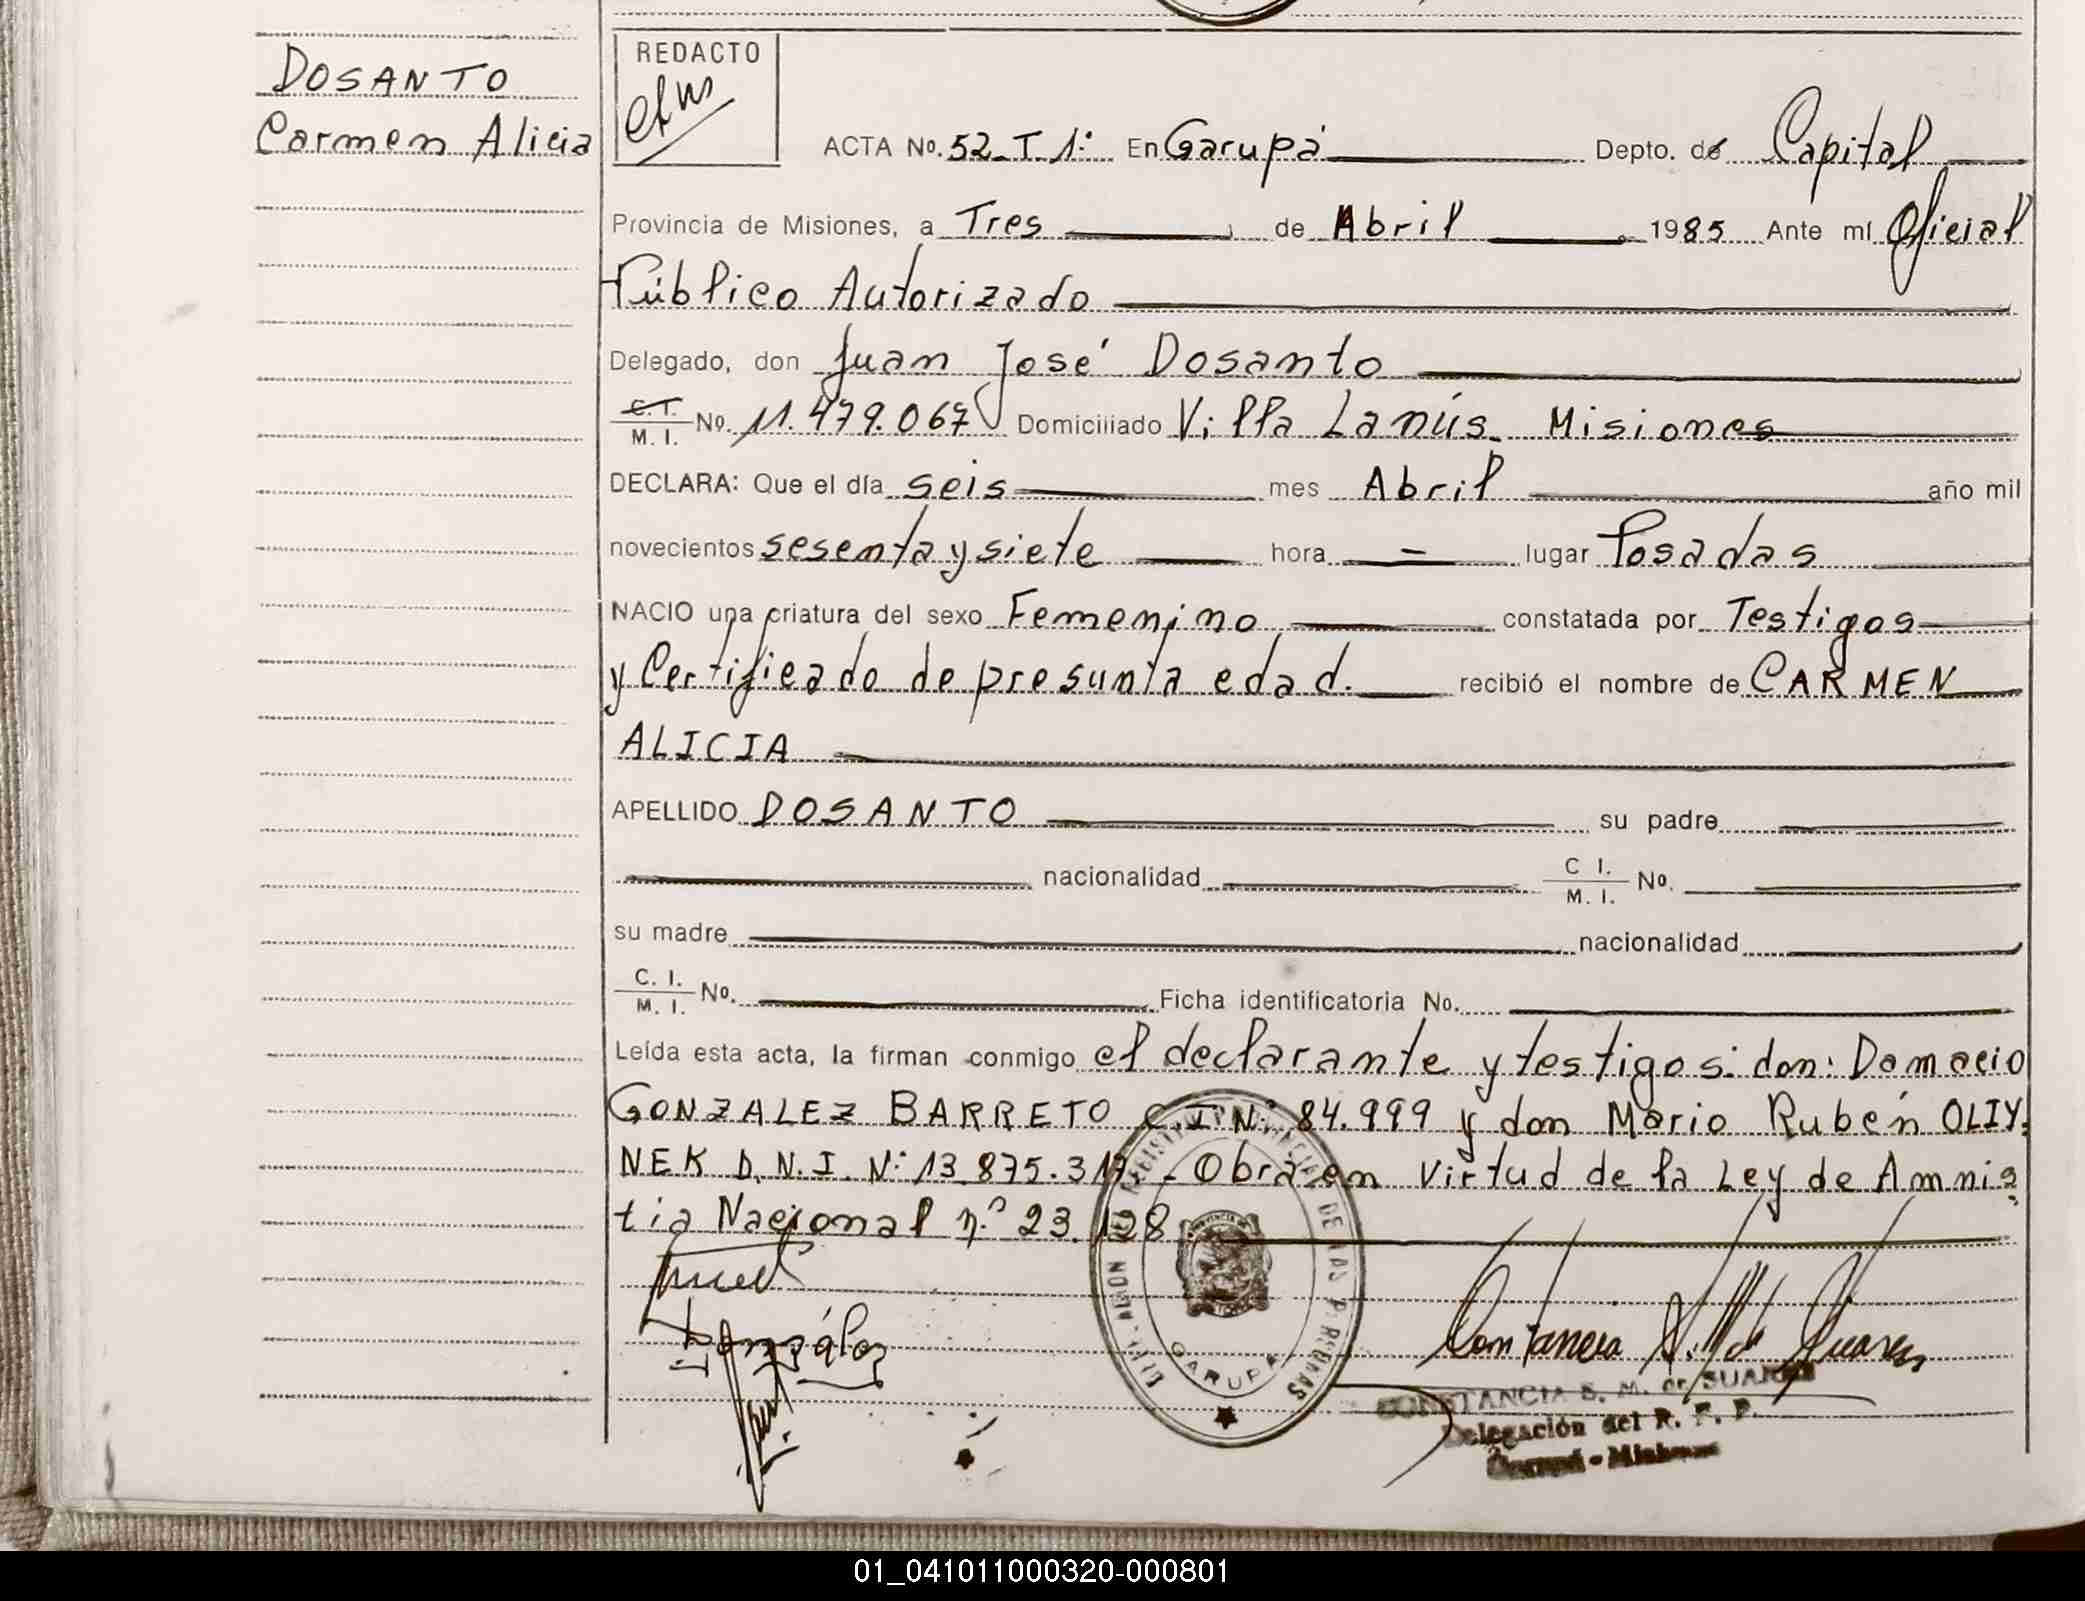 DOSANTO
Carmen Alicia
REDACTO
ACTA No. 52 T. 1: En Garupá Depto. de Capital
Provincia de Misiones, a Tres de Abril 1985 Ante mí Oficial
Público Autorizado
Delegado, don Juan José Dosanto
C.I. M. I. No. 11.479.067 Domiciliado Villa Lanús. Misiones
DECLARA: Que el día seis mes Abril año mil
novecientos sesenta y siete hora - lugar Posadas
NACIO una criatura del sexo Femenino constatada por Testigos
y Certificado de presunta edad. recibió el nombre de CARMEN
ALICIA
APELLIDO DOSANTO su padre
nacionalidad C I. M. I. No.
su madre nacionalidad
C. I. M. I. No. Ficha identificatoria No.
Leída esta acta, la firman conmigo el declarante y testigos: don: Damacio
GONZALEZ BARRETO C.I. Nº 84.999 y don Mario Rubén OLIY
NEK D.N.I. Nº 13.875.317 - Obra en Virtud de la Ley de Amnis
tia Nacional n.º 23.128
González
DE LAS PERSONAS
GARUPA
Constancia S. M. de Suarez
CONSTANCIA S. M. de SUAREZ
Delegación del R. P. P.
Garupá - Misiones
01_041011000320-000801